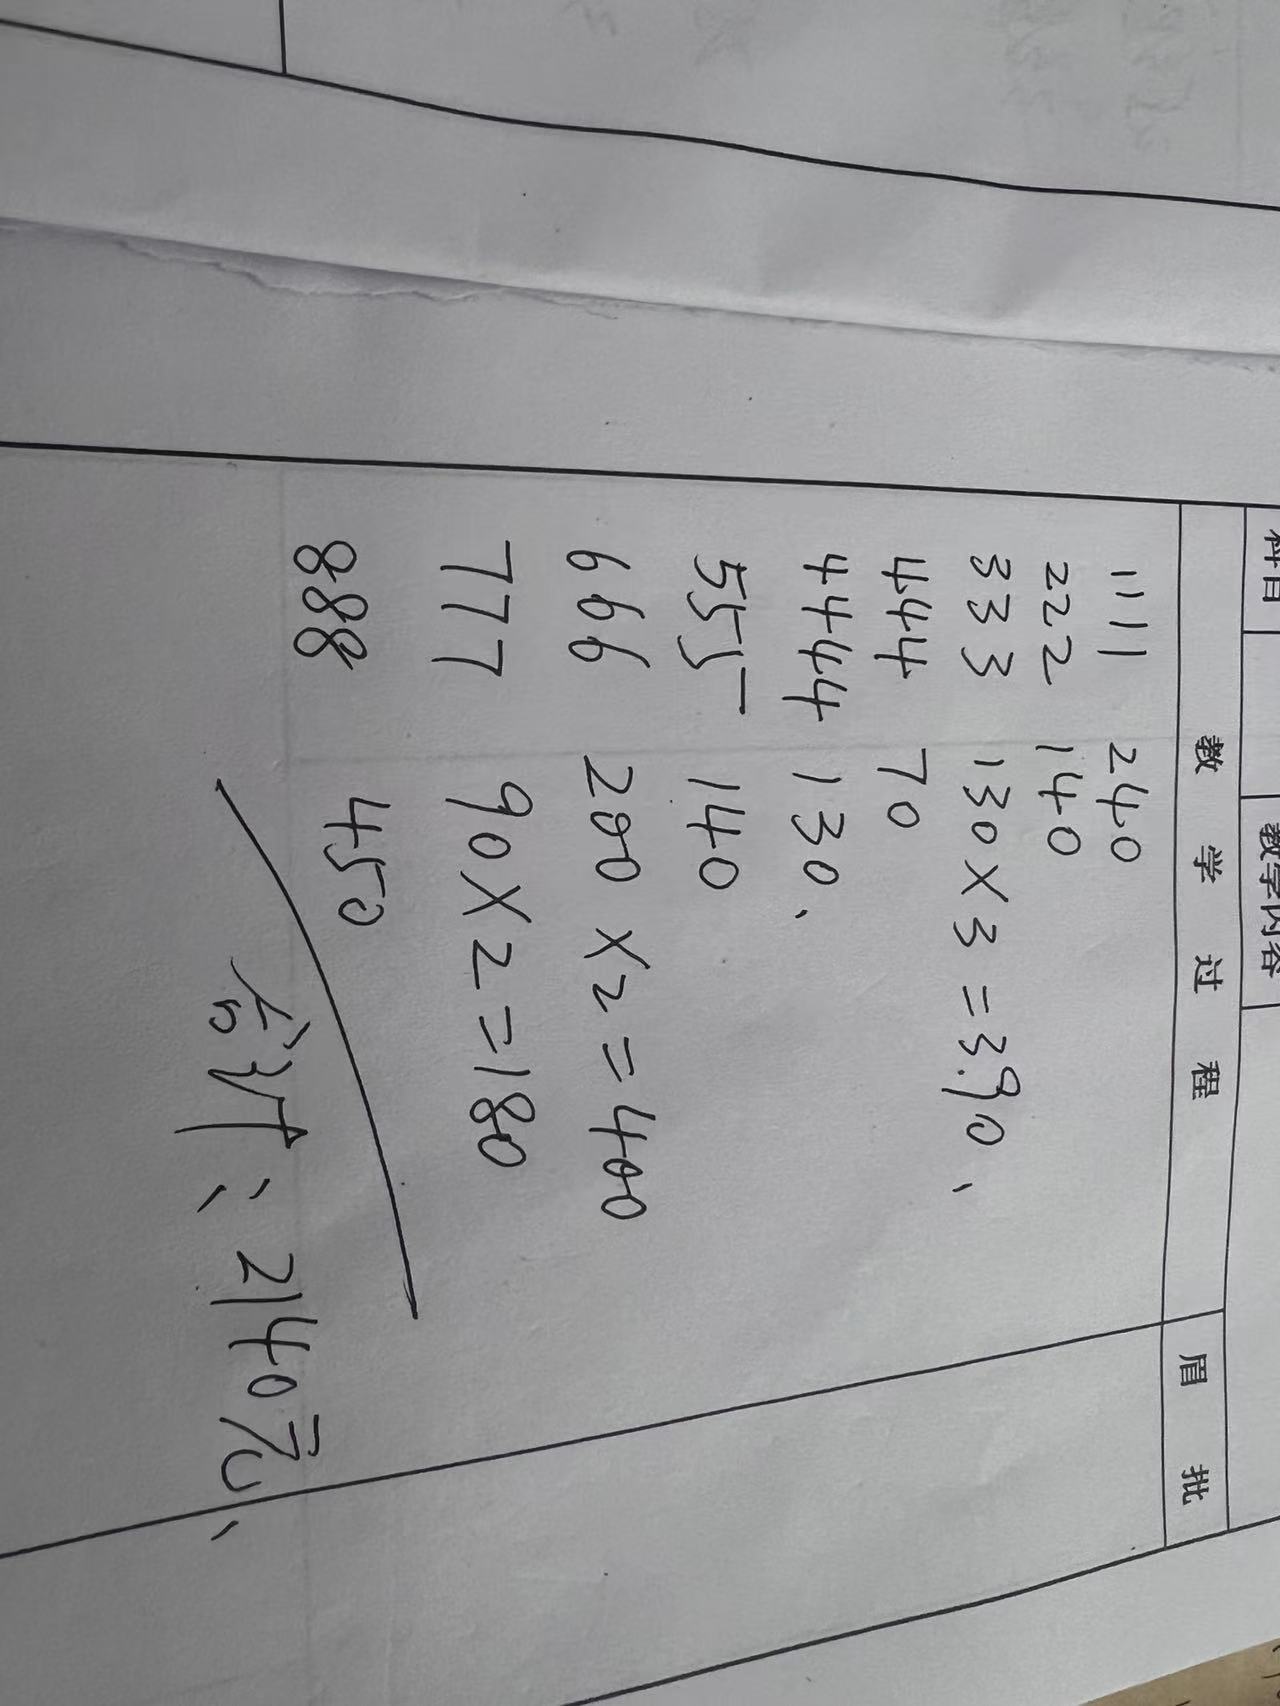 科目 教学内容
教 学 过 程 眉 批
1111 240
222 140
333 130×3=390、
444 70
4444 130、
555 140
666 200×2=400
777 90×2=180
888 450
合计：2140元、